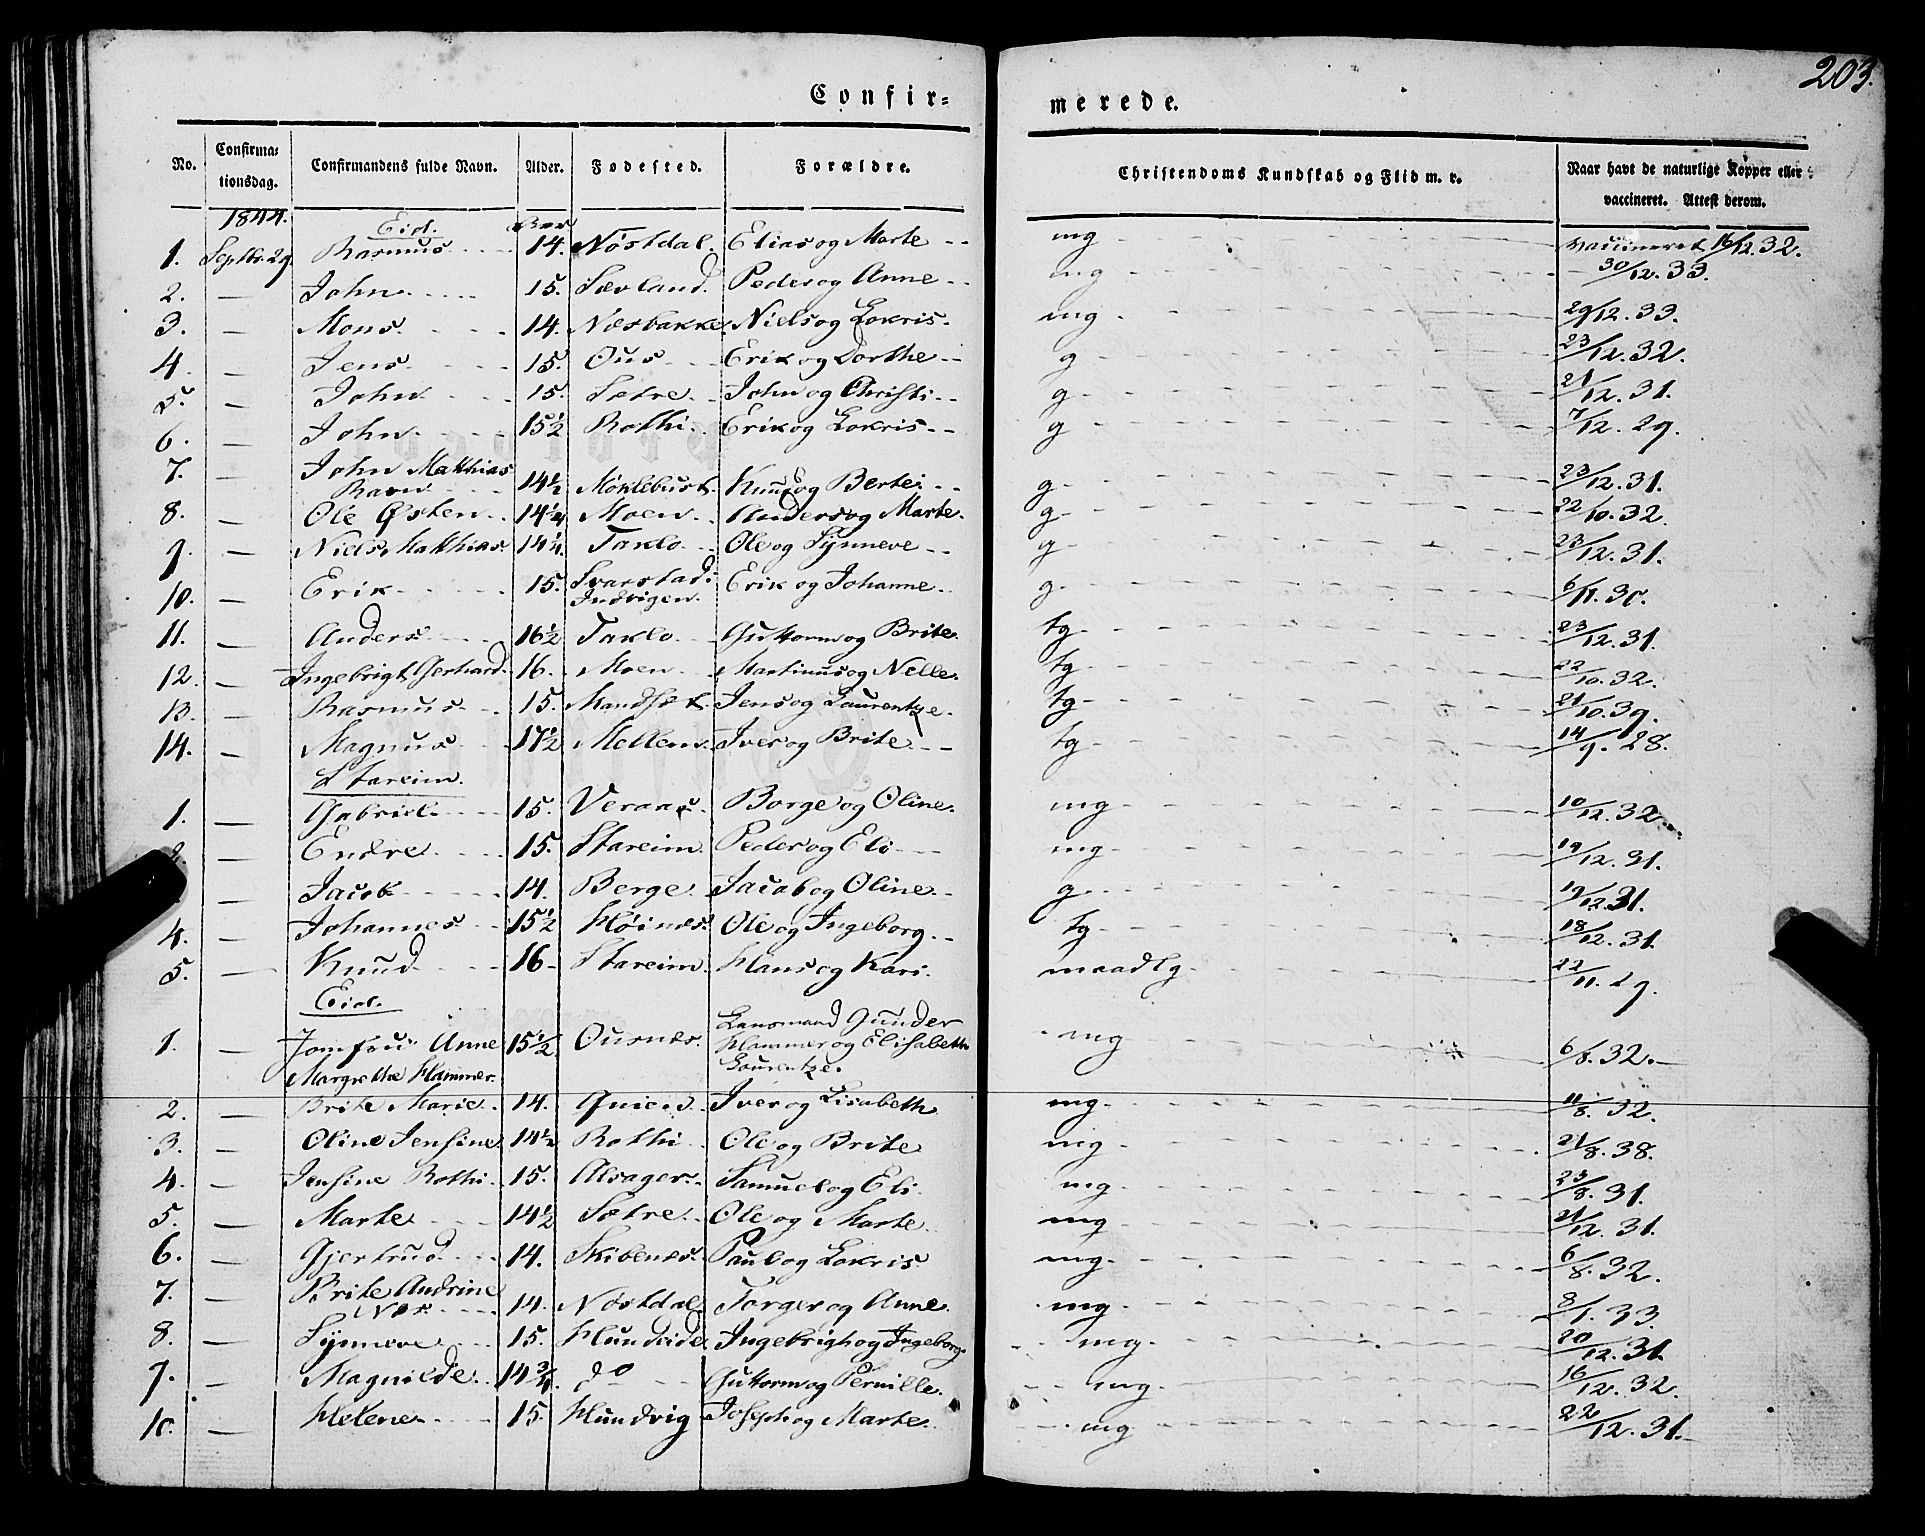 203.
Confir-
merede.
No. Confirmationsdag. Confirmandens fulde Navn. Alder. Fodested. Forældre. Christendoms Kundskab og Flid m. v. Naar havt de naturlige Kopper eller vaccineret. Attest derom.
1844. Eid.
1. Septbr. 29 Rasmus 14. Nøstdal. Elias og Marte mg vaccineret 16/12. 32.
2. — John 15. Sævland. Peder og Anne mg 30/12. 33.
3. — Mons 14. Næsbakke Niels og Lokris. mg 29/12. 33.
4. — Jens 15. Ous Erik og Dorthe g 23/12. 32.
5. — John 15. Sætre John og Christi g 21/12. 31.
6. — John 15½ Rothi Erik og Lokris g 7/12. 29.
7. — John Matthias
Ravn 14½ Møklebust. Knud og Berte g 23/12. 31.
8. — Ole Østen 14¼ Moen Anders og Marte. g 22/10. 32.
9. — Niels Matthias 14¼ Taklo Ole og Synneve g 23/12. 31.
10. — Erik 15. Svarstad i
Indvigen. Erik og Johanne g 6/11. 30.
11. — Anders 16½ Taklo Guttorm og Brite. tg 23/12. 31.
12. — Ingebrigt Gerhard. 16. Moen Martinus og Nelle. tg 22/10. 32.
13. — Rasmus 15. Mandsæt. Jens og Laurentze tg 21/10. 39.
14. — Magnus 17½ Mellem Iver og Brite tg 14/9. 28.
Stareim.
1. — Gabriel 15. Veraas Borge og Oline. mg 10/12. 32.
2. — Endre 15. Stareim Peder og Eli mg 19/12. 31.
— Jacob 14. Berge Jacob og Oline g 19/12. 31.
4. — Johannes 15½ Høinæs. Ole og Ingeborg tg 18/12. 31.
5. — Knud 16 Stareim Hans og Kari. maadlg. 22/11. 29.
Eid.
1. — Jomfru Anne
Margrethe Hammer. 15½ Ousnæs. Lensmand Gunder
Hammer og Elisabeth
Lourentze. mg 6/8. 32.
2. — Brite Marie 14. Iver og Lisabeth mg 11/8. 32.
3. — Oline Jensine 14½ Rothi Ole og Brite mg 21/8. 38.
4. — Jensine Rothi 15. Alsager Samuel og Eli mg 23/8. 31.
5. — Marte 14½ Sætre Ole og Marte mg 21/12. 31.
6. — Gjertrud 14. Skibenes. Paul og Lokris mg 6/8. 32.
7. — Brite Andrine
Næs 14. Nøstdal Torger og Anne mg 8/1. 33.
8. — Synneve 15. Hundeide Ingebrigh og Ingeborg mg 20/12. 31.
9. — Magnilde 14¾ do Guttorm og Pernille. mg 16/12. 32.
10. — Helene 15. Hundvig Joseph og Marte mg 22/12. 31.